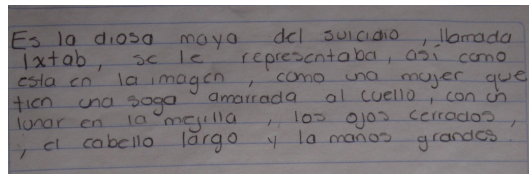 Es la diosa maya del suicidio, llamada
Ixtab, se le representaba, así como
esta en la imagen, como una mujer que
tien una soga amarrada al cuello, con un
lunar en la mejilla, los ojos cerrados,
, el cabello largo y la manos grandes.